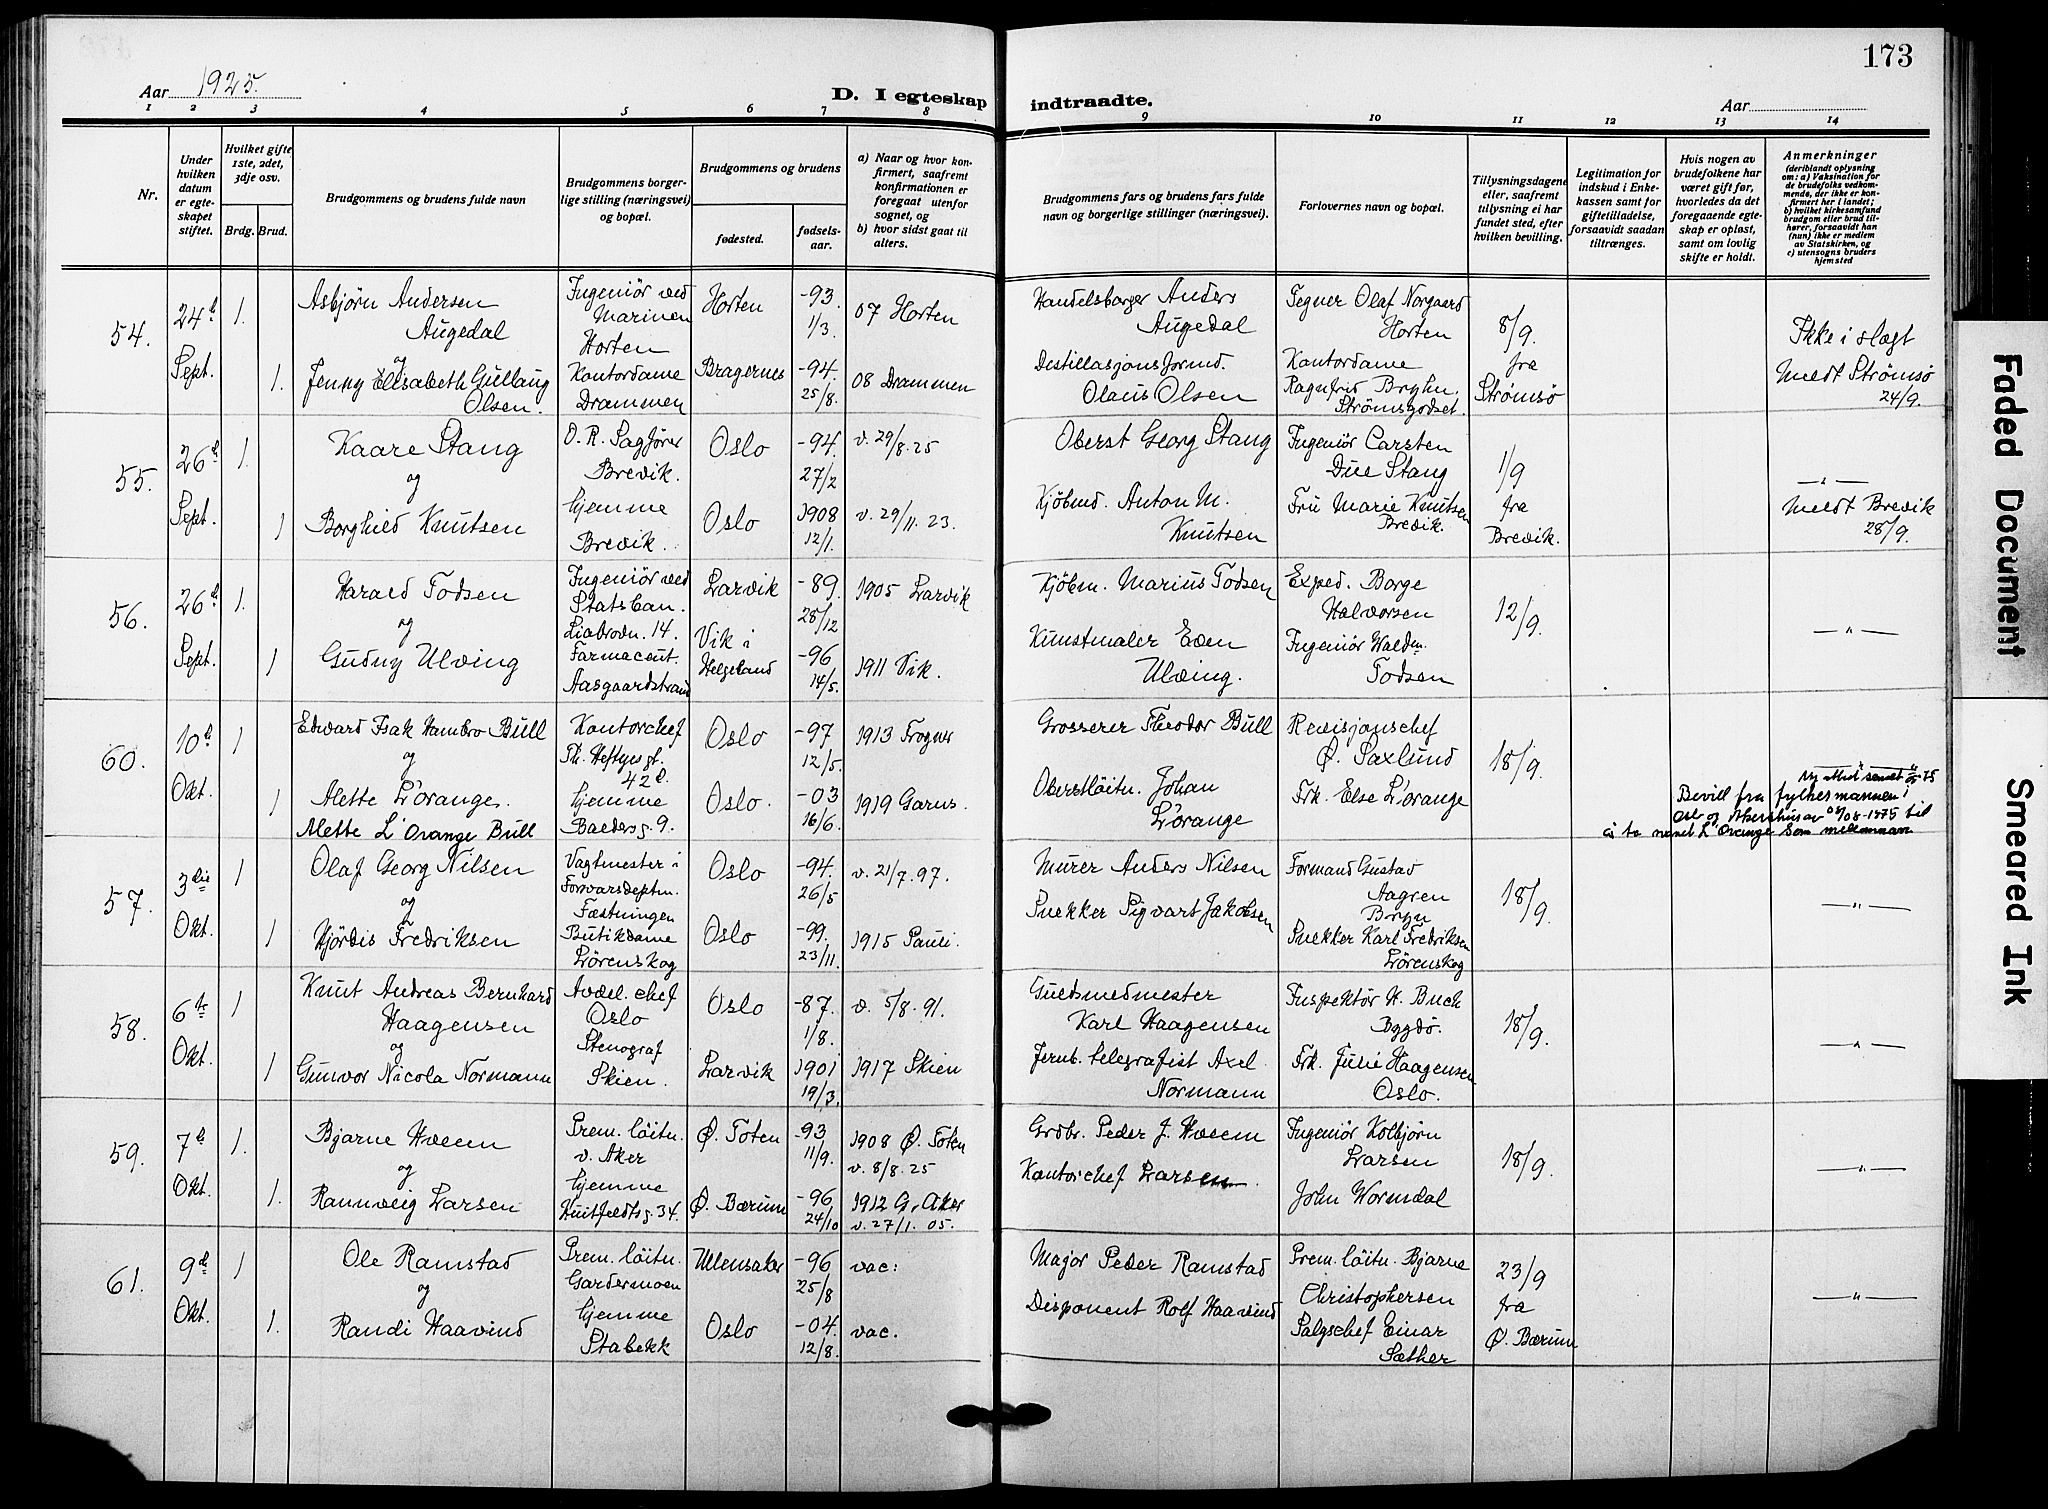 173
Aar 1925.
D. I egteskap indtraadte.
Aar
1 2 3 4 5 6 7 8 9 10 11 12 13 14
Nr.
Under hvilken datum er egteskapet stiftet.
Hvilket gifte 1ste, 2det, 3dje osv.
Brdg. Brud.
Brudgommens og brudens fulde navn
Brudgommens borgerlige stilling (næringsvei) og bopæl.
Brudgommens og brudens
fødested.
fødselsaar.
a) Naar og hvor konfirmert, saafremt konfirmationen er foregaat utenfor sognet, og
b) hvor sidst gaat til alters.
Brudgommens fars og brudens fars fulde navn og borgerlige stillinger (næringsvei).
Forlovernes navn og bopæl.
Tillysningsdagene eller, saafremt tillysning ei har fundet sted, efter hvilken bevilling.
Legitimation for indskud i Enkekassen samt for giftetilladelse, forsaavidt saadan tiltrænges.
Hvis nogen av brudefolkene har været gift før, hvorledes da det foregaaende egteskap er opløst, samt om lovlig skifte er holdt.
Anmerkninger (deriblandt oplysning om: a) Vaksination for de brudefolks vedkommende, der ikke er konfirmert her i landet; b) hvilket kirkesamfund brudgom eller brud tilhører, forsaavidt han (hun) ikke er medlem av Statskirken, og c) utensogns bruders hjemsted
54.
24de Sept.
1.
1.
Asbjørn Andersen
Augedal
og
Jenny Elisabeth Gullaug
Olsen.
Ingeniør ved
Marinen
Horten
Kontordame
Drammen
Horten
Bragernes
-93.
1/3.
-94.
25/8.
07 Horten
08 Drammen
Handelsborger Anders
Augedal
Destillasjonsformd.
Olaus Olsen
Tegner Olaf Norgaard
Horten
Kontordame
Ragnfrid Bryhn.
Strømsgodset.
8/9.
fra
Strømsø
Ikke i slegt
Meldt Strømsø
24/9.
55.
26de Sept.
1.
1
Kaare Stang
og
Borghild Knutsen
O. R. Sagfører
Brevik.
hjemme
Brevik.
Oslo
Oslo
-94.
27/2
1908
12/1.
v. 29/8.25
v. 29/11.23.
Oberst Georg Stang
Kjøbmd. Anton M.
Knutsen
Ingeniør Carsten
Due Stang
Fru Marie Knutsen
Brevik.
1/9
fra
Brevik.
—"—
Meldt Brevik
28/9.
56.
26de Sept.
1.
1
Harald Todsen
og
Gudny Ulving
Ingeniør ved
Statsban.
Liabrovn. 14.
Farmaceut.
Aasgaardstrand
Larvik
Vik i
Helgeland
-89.
28/12
-96
14/5.
1905 Larvik
1911 Vik.
Kjøbm. Marius Todsen
Kunstmaler Even
Ulving.
Exped. Borge
Halvorsen
Ingeniør Waldm.
Todsen
12/9.
—"—
60.
10de Okt.
1
1
Edvard Isak Hambro Bull
og
Mette L'orange.
Mette L'Orange Bull
Kontorchef
Th. Heftyes gt.
42 d.
hjemme
Baldersg. 9.
Oslo
Oslo.
-97
12/5.
-03
16/6.
1913 Frogner
1919 Garns.
Grosserer Theodor Bull
Oberstløitn. Johan
L'orange
Revisjonschef
Ø. Saxlund
Frk. Else L'orange
18/9.
Bevill fra fylkesmannen i
Oslo og Akershus av 08/08-1975 til
å ta navnet L'Orange som mellomnavn
57.
3die Okt.
1
1
Olaf Georg Nilsen
og
Hjørdis Fredriksen
Vagtmester i
Forsvarsdeptm.
Fæstningen
Butikdame
Lørenskog
Oslo
Oslo
-94.
26/5
-99.
23/11.
v. 21/7.97.
1915 Pauli.
Murer Anders Nilsen
Snekker Sigvart Jakobsen
Formand Gustav
Aagren
Bryn
Snekker Karl Fredriksen
Lørenskog
18/9.
—"—
58.
6te Okt.
1
1
Knut Andreas Bernhard
Haagensen
og
Gunvor Nicola Normann
Avdel. chef
Oslo
Stenograf
Skien.
Oslo
Larvik
-87.
1/8.
1901
19/3.
v. 5/8.91.
1917 Skien
Guldsmedmester
Karl Haagensen
Jernb. telegrafist Axel
Normann
Inspektør H. Buch
Bygdø.
Frk. Julie Haagensen
Oslo.
18/9.
—"—
59.
7de Okt.
1.
1.
Bjarne Hveem
og
Rannveig Larsen
Prem. løitn.
v. Aker
hjemme
Huitfeldtsg. 34.
Ø. Toten
Ø. Bærum
-93
11/9.
-96
24/10
1908 Ø. Toten
v. 8/8.25
1912 G. Aker
v. 27/1.05.
Grdbr. Peder J. Hveem
Kontorchef Larsen.
Ingeniør Kolbjørn
Larsen
John Wormdal
18/9.
—"—
61.
9de Okt.
1
1.
Ole Ramstad
og
Randi Haavind
Prem. løitn.
Gardermoen
hjemme
Stabekk
Ullensaker
Oslo
-96
25/8
-04.
12/8.
vac:
vac.
Major Peder Ramstad
Disponent Rolf Haavind
Prem. løitn. Bjarne
Christophersen
Salgschef Einar
Sæther
23/9
fra
Ø. Bærum
—"—
Faded Document
Smeared Ink